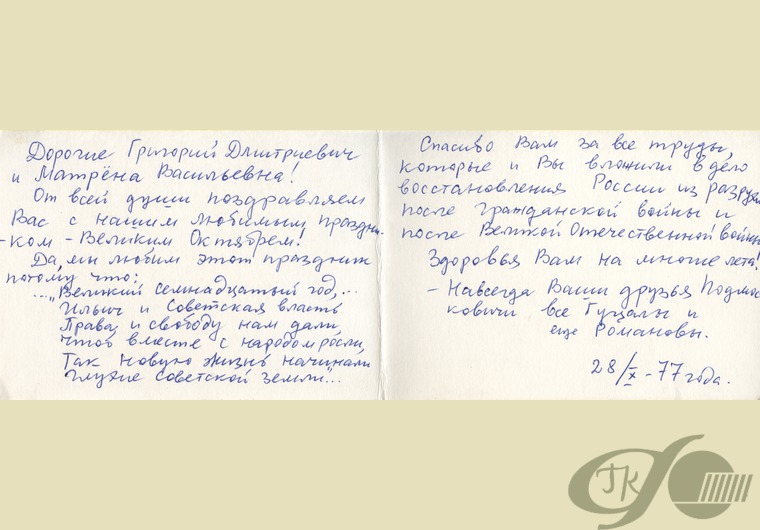 Дорогие Григорий Дмитриевич
и Матрёна Васильевна!
От всей души поздравляем
Вас с нашим любимым праздни-
-ком - Великим Октябрем!
Да, мы любим этот праздник
потому что:
..."Великий семнадцатый год,...
Ильич и Советская власть
Права и свободу нам дали,
чтоб вместе с народом росли,
Так новую жизнь начинали
Советской земли"...
Спасибо Вам за все труды,
которые и Вы вложили в дело
восстановления России из разрухи
после гражданской войны и
после Великой Отечественной войны
Здоровья Вам на многие лета!
- Навсегда Ваши друзья Подмос-
ковичи все Гуцалы и
еще Романовы.
28/X - 77 года.
ГК